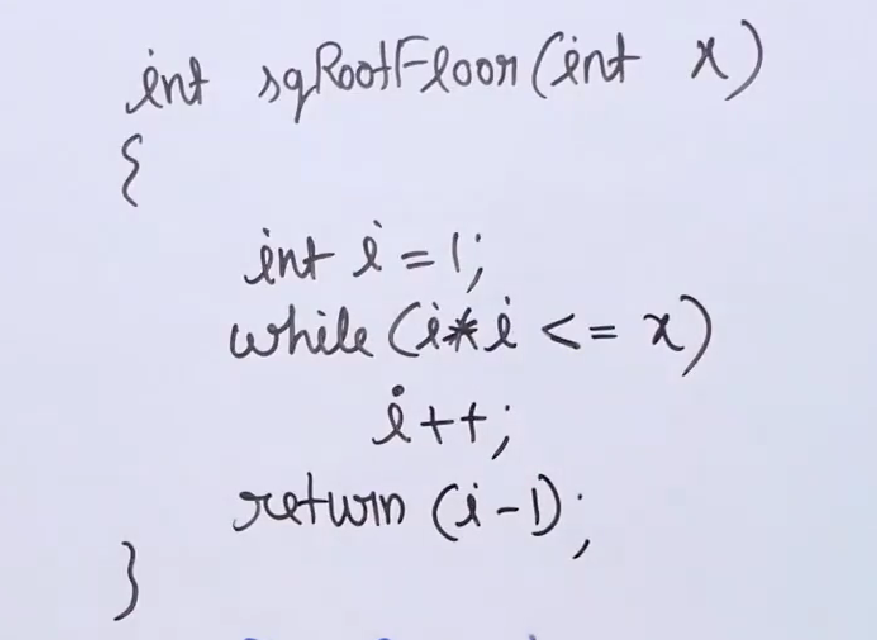 int sqRootFloor(int x)
{
int i = 1;
while (i*i <= x)
i++;
return (i-1);
}